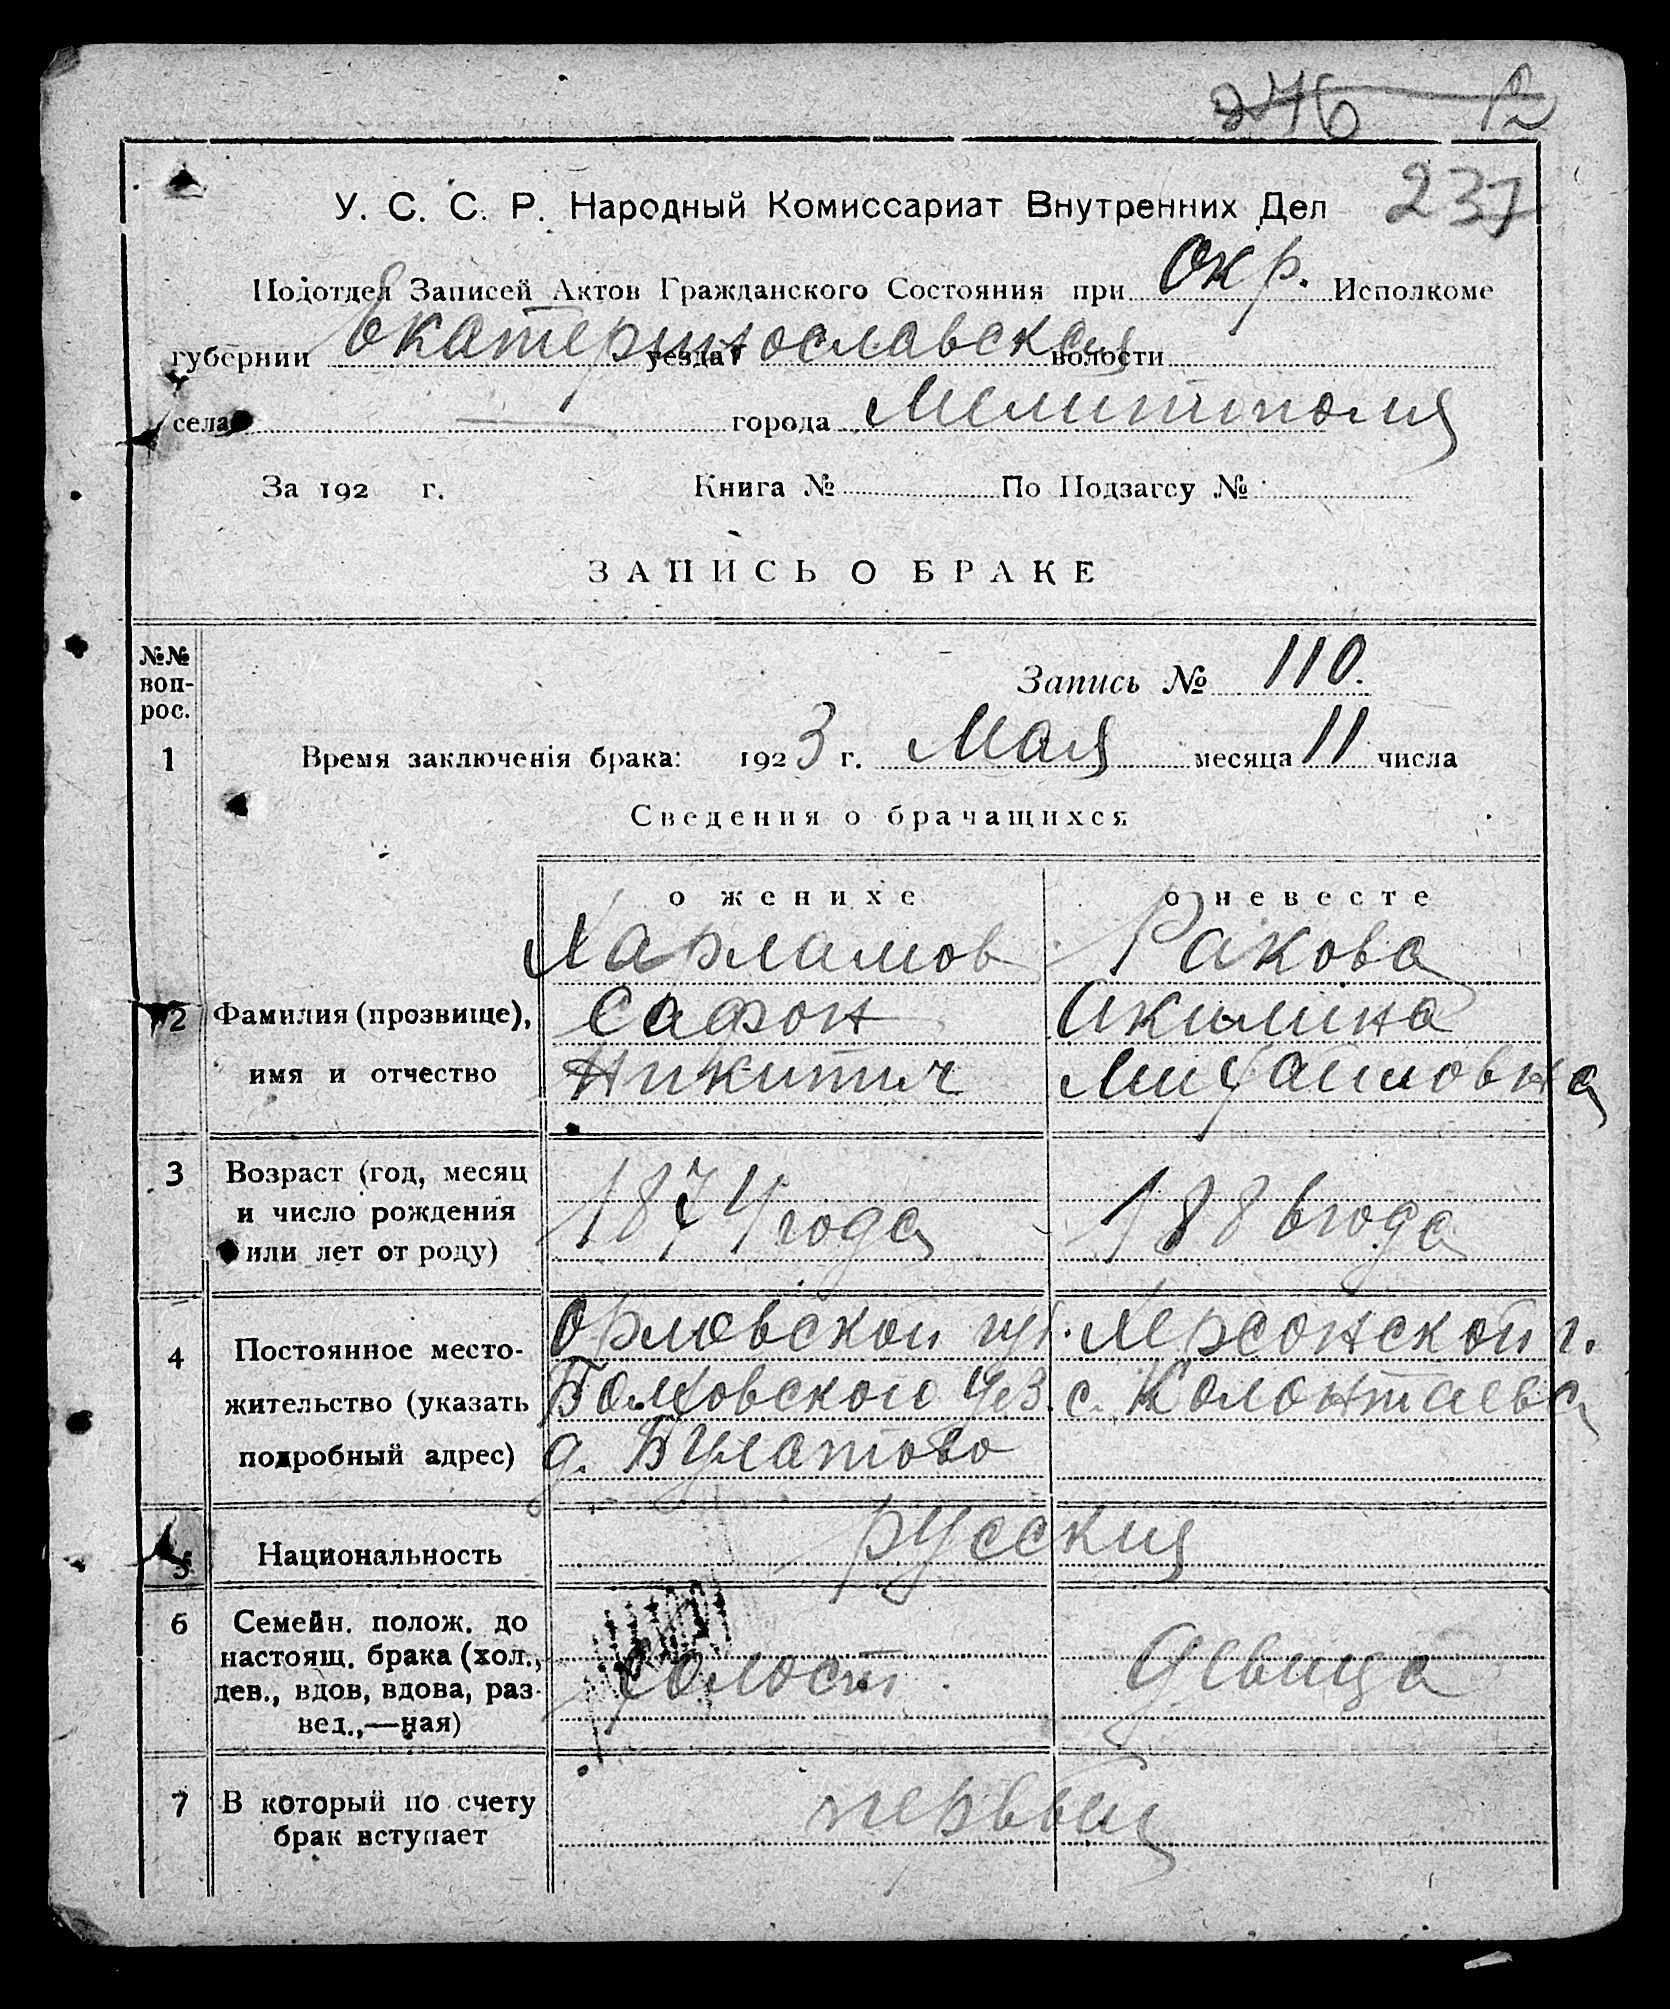 246 12
237
У. С. С. Р. Народный Комиссариат Внутренних Дел
Подотдел Записей Актов Гражданского Состояния при Окр. Исполкоме
губернии Екатеринославская уезда волости
села — города Мелитополя
За 192 г. Книга № По Подзагсу №
ЗАПИСЬ О БРАКЕ
№№ вопрос.
Запись № 110.
1 Время заключенія брака: 1923 г. Мая месяца 11 числа
Сведения о брачащихся
о женихе о невесте
Харламов Ракова
2 Фамилия (прозвище), Сафон Акилина
имя и отчество Никитич Михайловна
3 Возраст (год, месяц
и число рождения 1874 года 1886 года
или лет от роду)
Орловской губ. Херсонской г.
4 Постоянное место-
жительство (указать Болховской уез. с. Колонтаева
подробный адрес) д. Булатово
5 Национальность русския
6 Семейн. полож. до
настоящ. брака (хол., холост девица
дев., вдов, вдова, раз-
вед.,—ная)
7 В который по счету первый
брак вступает